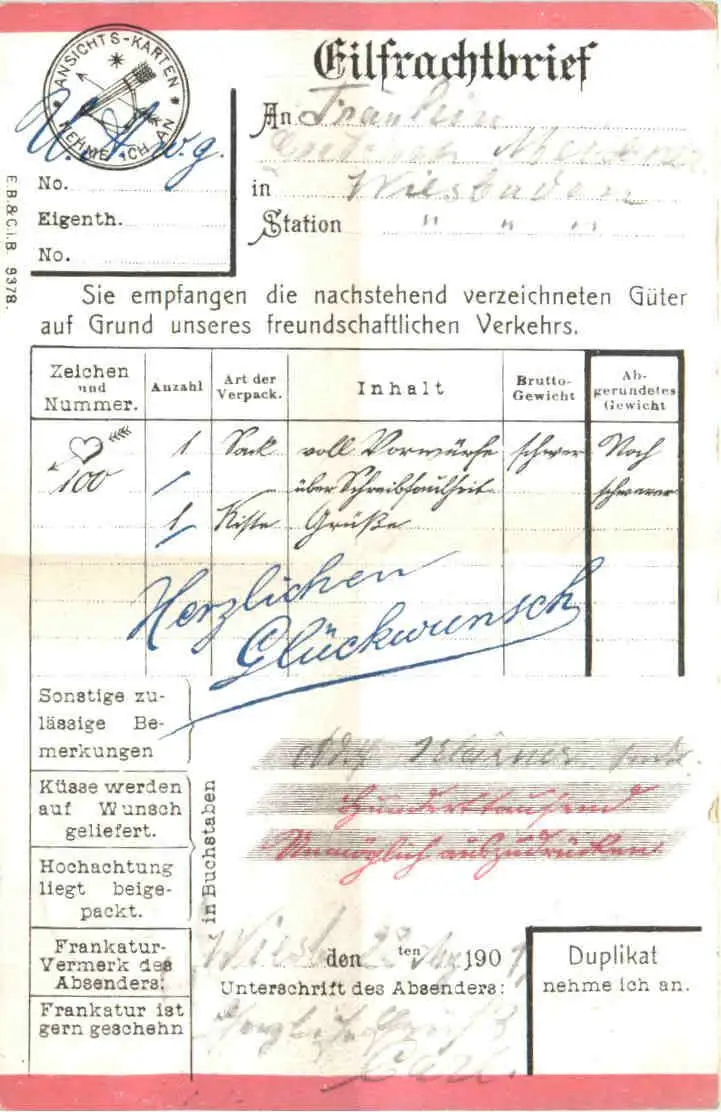 Eilfrachtbrief
ANSICHTS-KARTEN
NEHME ICH AN
U. A. w. g.
An Fräulein
in Wiesbaden
Station " " "
No.
Eigenth.
No.
E.B.&C.i.B. 9378.
Sie empfangen die nachstehend verzeichneten Güter
auf Grund unseres freundschaftlichen Verkehrs.
Zeichen und Nummer. Anzahl Art der Verpack. Inhalt Brutto-Gewicht Ab-gerundetes Gewicht
1 Sack voll Vorwürfe schwer Noch
100 über Schreibfaulheit schwerer
1 Kiste Grüße
Herzlichen
Glückwunsch
Sonstige zu-
lässige Be-
merkungen
Küsse werden
auf Wunsch
geliefert.
Hochachtung
liegt beige-
packt.
in Buchstaben
Hunderttausend
Unmöglich auszudrücken
Frankatur-
Vermerk des
Absenders:
Frankatur ist
gern geschehn
Wiesb. den 22 ten 190
Unterschrift des Absenders:
Carl.
Duplikat
nehme ich an.